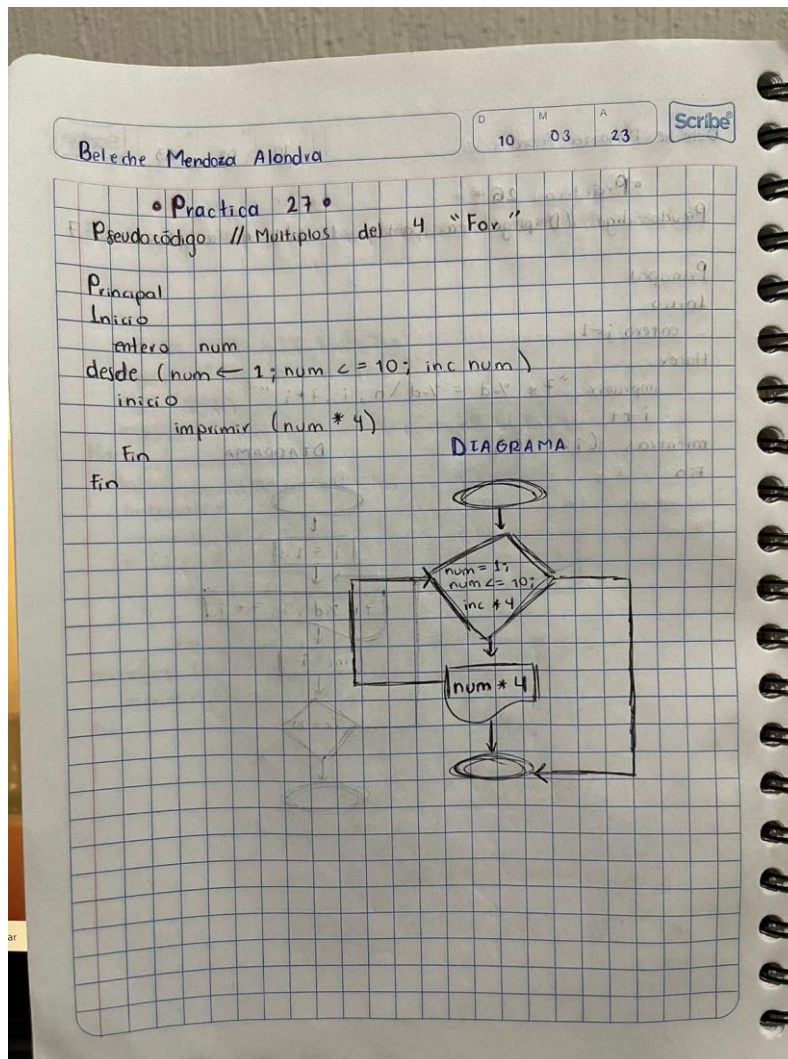 D M A
10 03 23
Scribe
Beleche Mendoza Alondra
• Practica 27 •
Pseudocódigo // Multiplos del 4 "For"
Principal
Inicio
entero num
desde (num ← 1; num <= 10; inc num)
inicio
imprimir (num * 4)
Fin
Fin
DIAGRAMA
num = 1;
num <= 10;
inc * 4
num * 4
ar